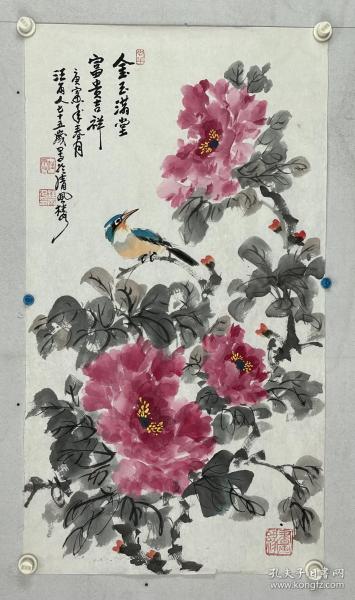 金玉满堂
富贵吉祥
庚寅年春月
七十五岁写於清风楼
孔夫子旧书网